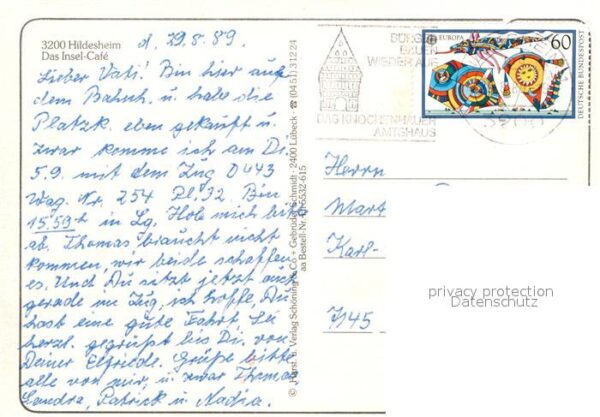 3200 Hildesheim
Das Insel-Café
d. 29.8.89.
Lieber Vati! Bin hier auf
dem Bahnh. u. habe die
Platzk. eben gekauft u.
zwar komme ich am Di.
5.9. mit dem Zug D 443
Wag. Nr. 254 Pl. 32. Bin
15.59 in Lg. Hole mich bitte
ab. Thomas braucht nicht
kommen, wir beide schaffen
es. Und Du sitzt jetzt auch
gerade im Zug, ich hoffe, Du
hast eine gute Fahrt. Sei
herzl. gegrüßt bis Di. von
Deiner Elfriede. Grüße bitte
alle von mir, u. zwar Thomas
Sandra, Patrick u. Nadia.
© Horst u. Verlag Schöning & Co · Gebrüder Schmidt · 2400 Lübeck · ☎ (0451) 31224
aa Bestell-Nr. 5532-615
BÜRGER
BAUEN
WIEDER AUF
DAS KNOCHENHAUER
AMTSHAUS
EUROPA
60
DEUTSCHE BUNDESPOST
Herrn
Mart
Karl-
7145
privacy protection
Datenschutz